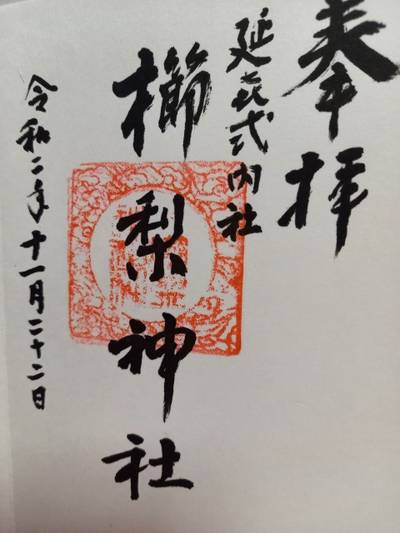 奉拝
延喜式内社
櫛梨神社
令和二年十一月二十二日